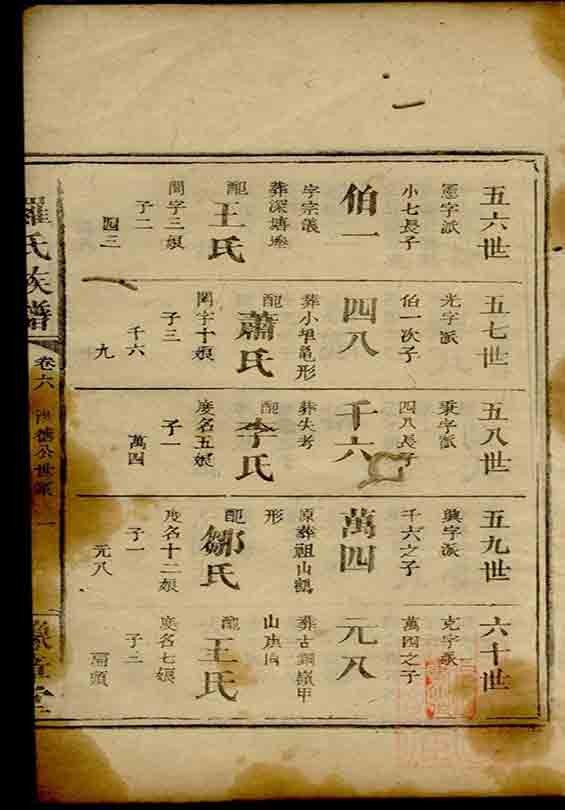 五六世
憲字派
小七長子
伯一
字宗儀
葬深塘
配
王氏
閏字三娘
子二
四三
五七世
光字派
伯一次子
四八
葬小坤黽形
配
蕭氏
閏字十娘
子三
千六
九
五八世
秉字派
四八長子
千六
葬失考
配
李氏
度名五娘
子一
萬四
五九世
興字派
千六之子
萬四
原葬祖山鶴
形
配
鄒氏
度名十二娘
子一
元八
六十世
克字派
萬四之子
元八
葬古銅嶺甲
山庚向
配
王氏
度名七娘
子二
羅氏族譜
卷六
公世系
一
豫章堂